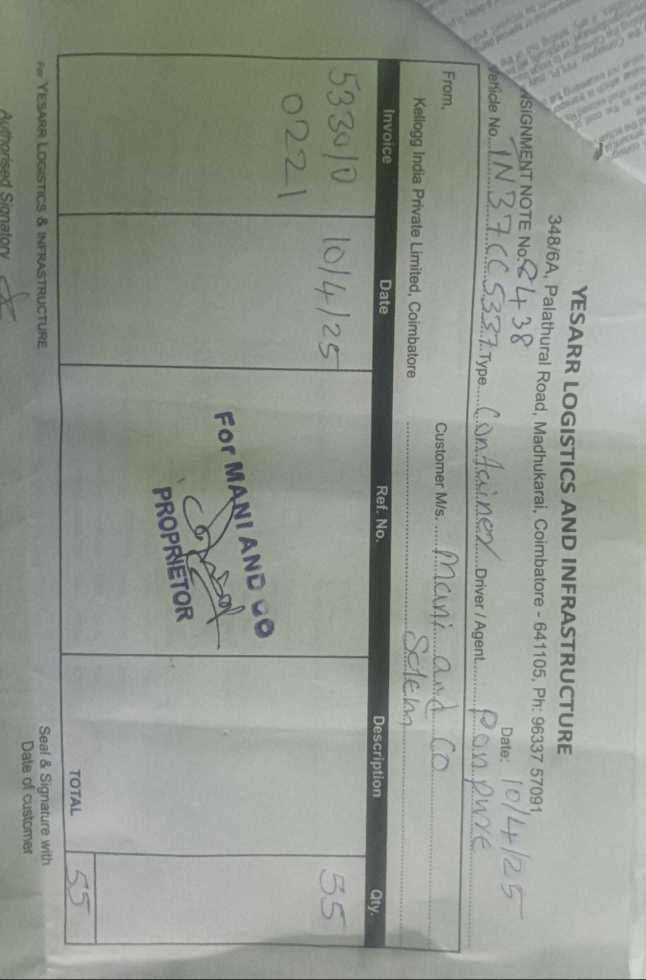 YESARR LOGISTICS AND INFRASTRUCTURE
348/6A, Palathural Road, Madhukarai, Coimbatore - 641105, Ph: 96337 57091
NSIGNMENT NOTE No. 8438 Date: 10/4/25
Vehicle No. TN37CC5337 Type Container Driver / Agent
From, Customer M/s. Mani and Co
Kellogg India Private Limited, Coimbatore Selem
Invoice Date Ref. No. Description Qty.
533010 10/4/25 55
0221
For MANI AND CO
PROPRIETOR
TOTAL 55
For YESARR LOGISTICS & INFRASTRUCTURE Seal & Signature with
Authorised Signatory Date of customer